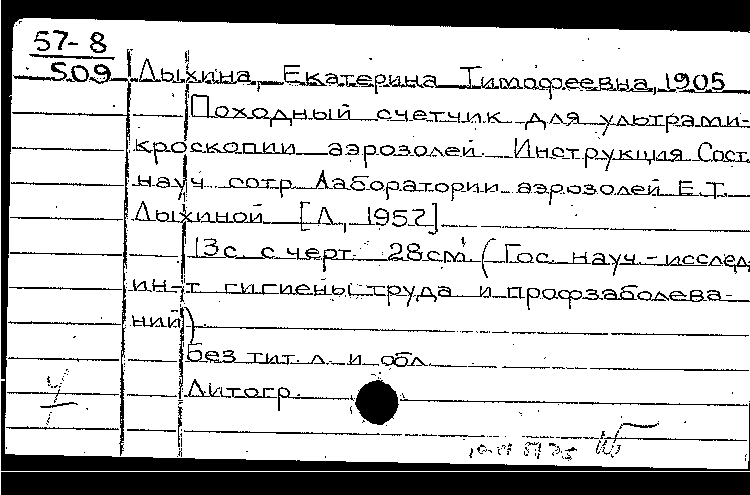 57-8
509
Лыхина, Екатерина Тимофеевна, 1905
Походный счетчик для ультрами-
кроскопии аэрозолей. Инструкция Сост.
науч сотр Лаборатории аэрозолей Е.Т.
Лыхиной [Л, 1957]
13с. с черт. 28см (Гос. науч.-исслед.
ин-т гигиены труда и профзаболева-
ний)
Без тит. л. и обл.
Литогр.